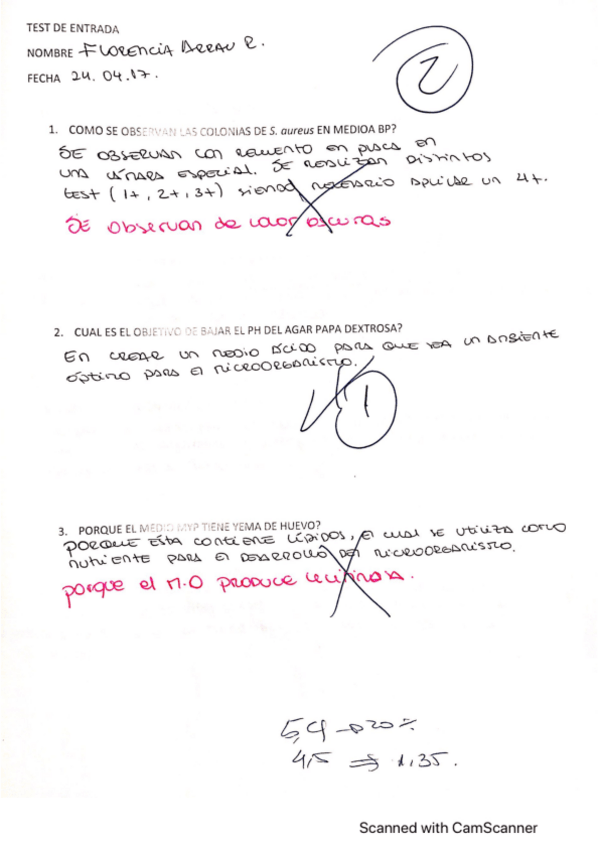 TEST DE ENTRADA
NOMBRE FLORENCIA ARRAU R.
FECHA 24.04.17.
2
1. COMO SE OBSERVAN LAS COLONIAS DE S. aureus EN MEDIOA BP?
SE OBSERVAN CON AUMENTO EN PLACA EN
UNA CÁMARA ESPECIAL. SE REALIZAN DISTINTOS
test (1+, 2+, 3+) siendo necesario aplicar un 4+.
SE observan de color oscuras
2. CUAL ES EL OBJETIVO DE BAJAR EL PH DEL AGAR PAPA DEXTROSA?
En CREAR un MEDIO ÁCIDO PARA QUE SEA un AMBIENTE
óptimo PARA El MICROORGANISMO.
1
3. PORQUE EL MEDIO MYP TIENE YEMA DE HUEVO?
PORQUE ESTA CONTIENE LÍPIDOS, El cual se utiliza como
nutriente PARA El DESARROLLO DEL MICROORGANISMO.
porque el M.O PRODUCE lecitinasa.
5,4 → 20%
4,5 ⇒ 1,35.
Scanned with CamScanner